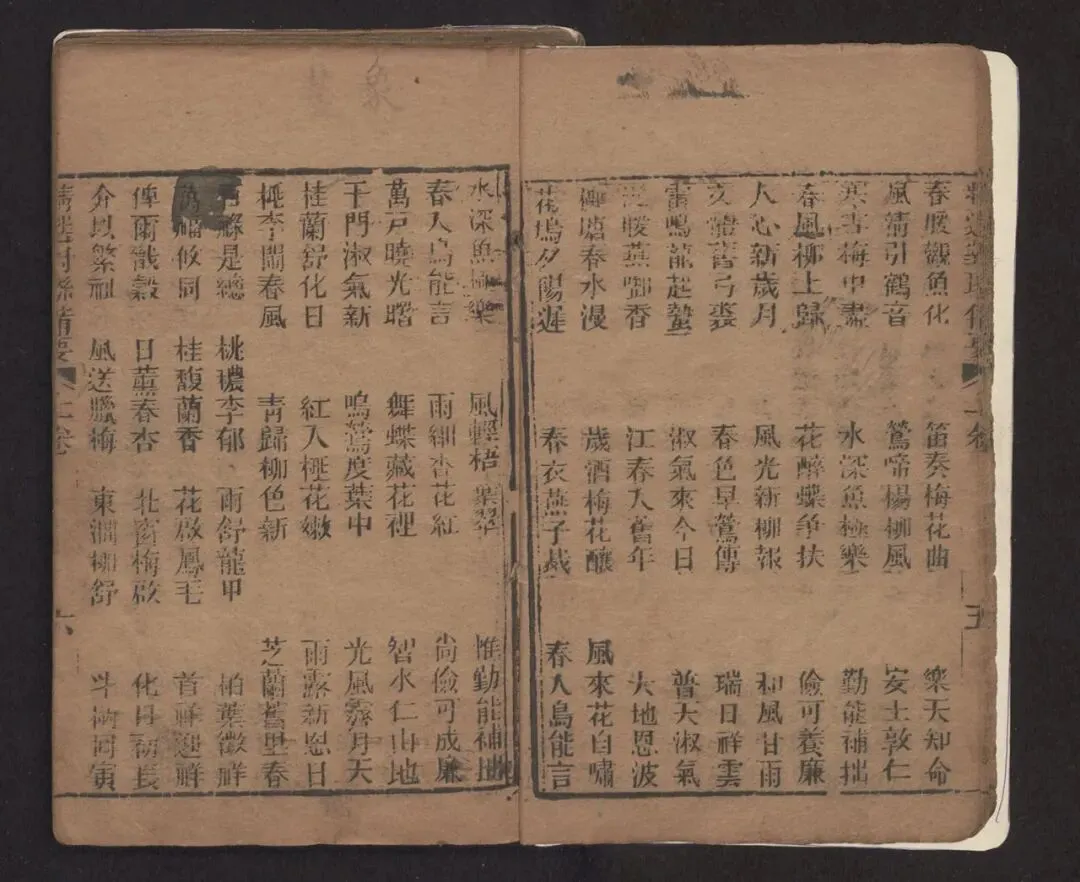 卷 五
春暖觀魚化 笛奏梅花曲 樂天知命
風清引鶴音 鶯啼楊柳風 安土敦仁
寒 梅中盡 水深魚極樂 勤能補拙
春風柳上歸 花醉蝶爭扶 儉可養廉
人心新歲月 風光新柳報 和風甘雨
舊弓裘 春色早鶯傳 瑞日祥雲
雷鳴龍起蟄 淑氣來今日 普天淑氣
暖燕啣香 江春入舊年 大地恩波
柳塘春水漫 歲酒梅花釀 風來花自嘯
花塢夕陽遲 春衣燕子裁 春人鳥能言
水深魚極樂 風輕梧葉翠 惟勤能補拙
春入鳥能言 雨細杏花紅 尚儉可成廉
萬戶曉光曙 舞蝶藏花裡 智水仁山地
千門淑氣新 鳴鶯度葉中 光風霽月天
桂蘭舒化日 紅入桃花嫩 雨露新恩日
桃李鬧春風 青歸柳色新 芝蘭舊里春
百祿是總 桃濃李郁 雨舒龍甲 柏葉徵祥
萬福攸同 桂馥蘭香 花啟鳳毛 首祥迎祥
俾爾戩穀 日薰春杏 北窗梅啟 化日初長
介以繁祉 風送臘梅 東澗柳舒 斗柄回寅
卷 六